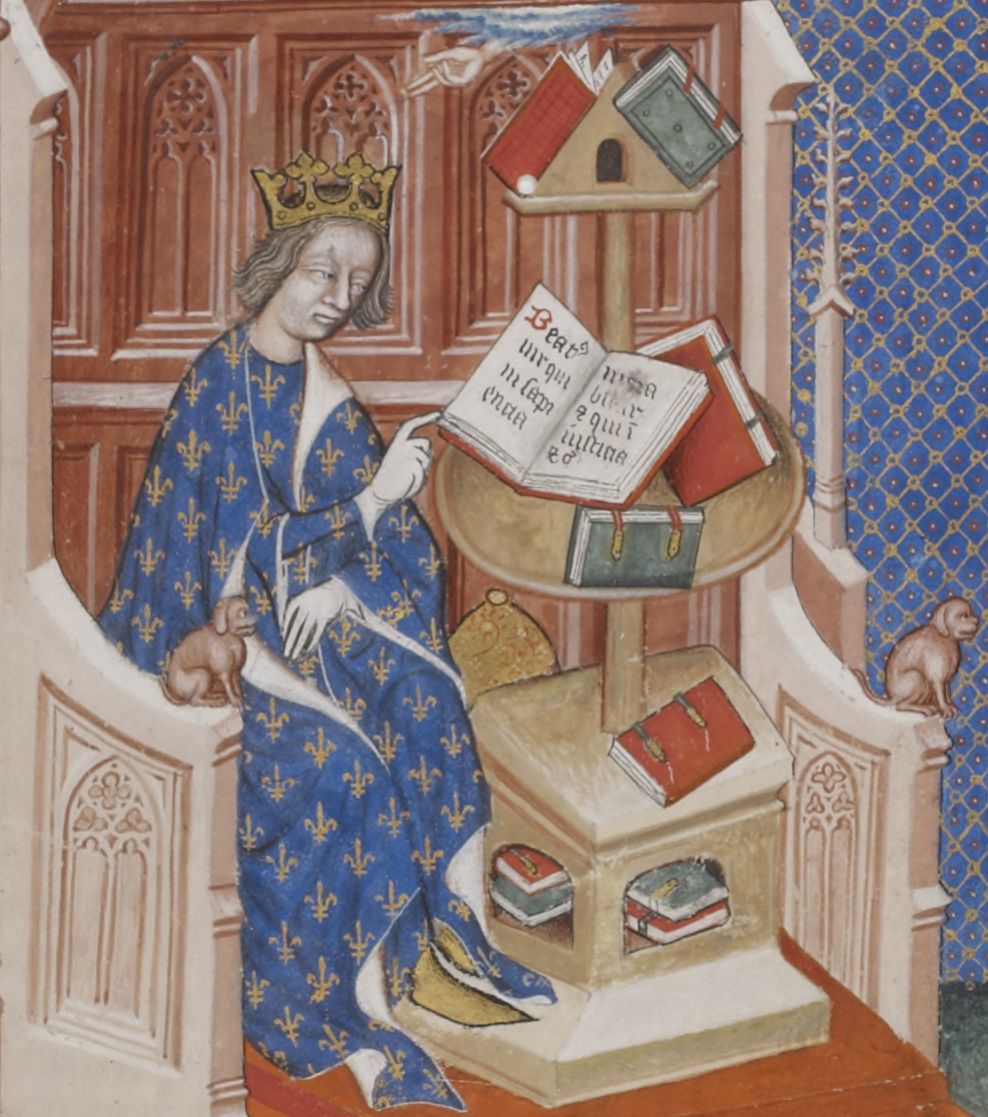 Beatꝰ
uir qui
in sapi
encia
⁊ qui ī
iusticia